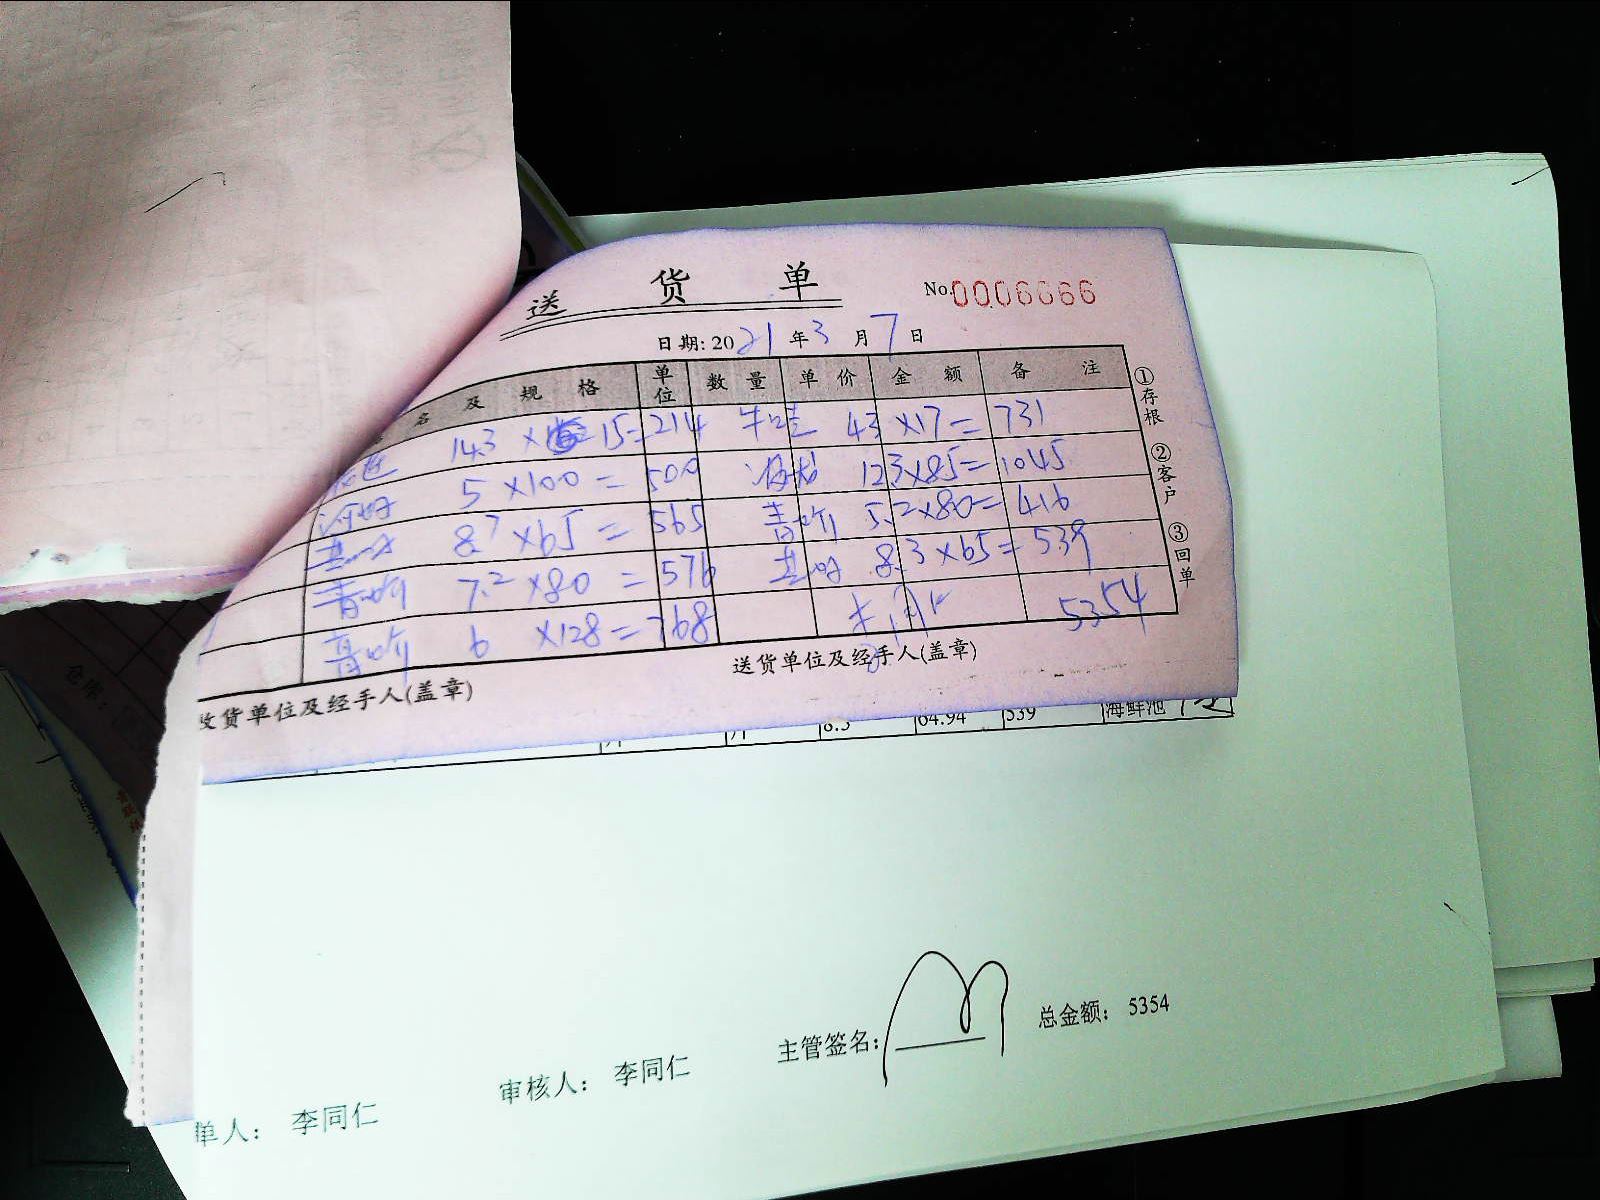 送 货 单
No.0006666
日期: 2021 年 3 月 7 日
名 及 规 格 单位 数 量 单 价 金 额 备 注
14.3 × 15=214 牛蛙 43 ×17= 731
5 ×100 = 500 12.3×85= 1045
8.7 ×65 = 565 青 5.2×80= 416
7.2 ×80 = 576 基 8.3 ×65= 539
6 ×128= 768 5354
①存根
②客户
③回单
收货单位及经手人(盖章) 送货单位及经手人(盖章)
8.3 64.94 539 海鲜池
单人： 李同仁 审核人： 李同仁 主管签名: 总金额： 5354